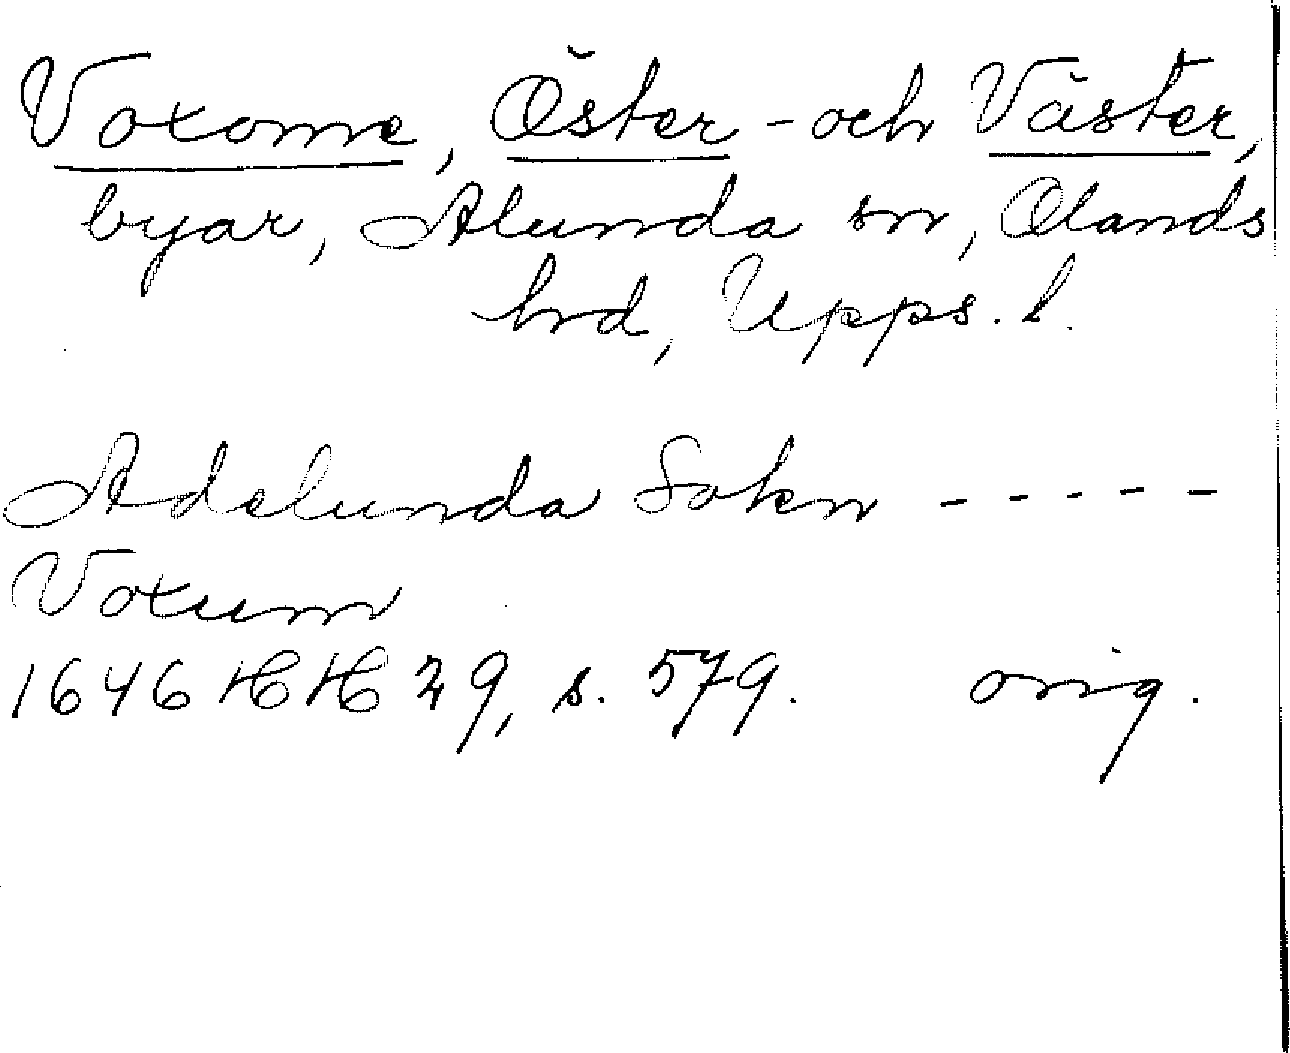 Voxome, Öster- och Väster,
byar, Alunda sn, Olands
hrd, Upps. l.
Adelunda Sokn -----
Voxum
1646 HH 29, s. 579. orig.